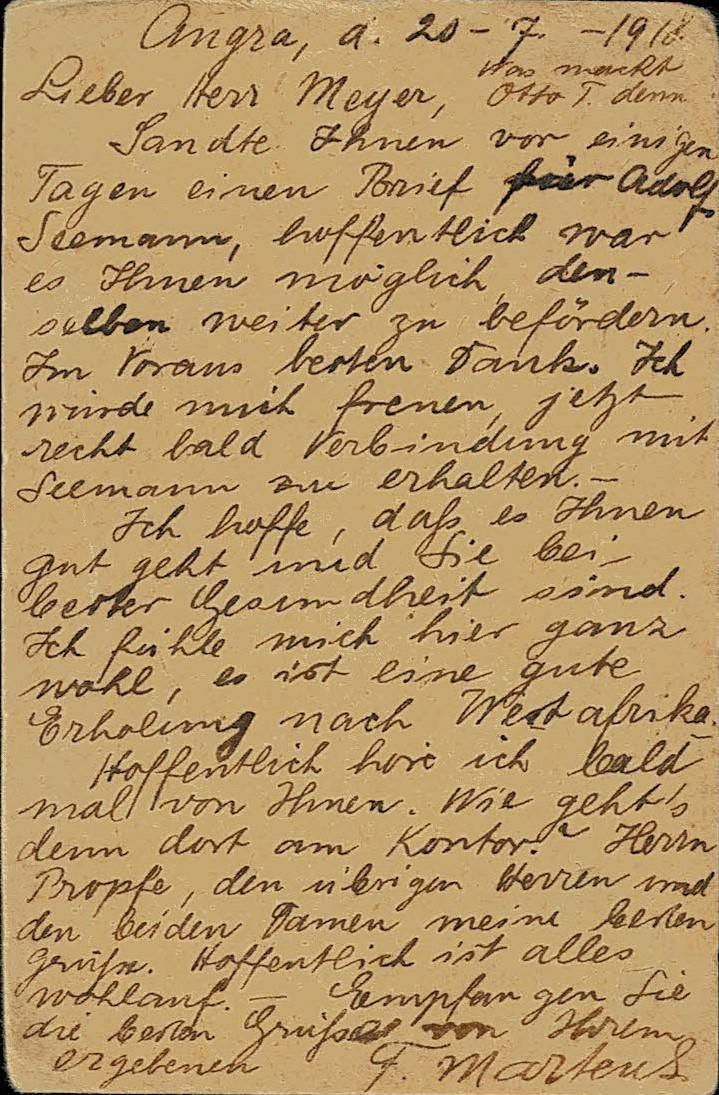 Angra, d. 20-7.-1918.
Was macht
Lieber Herr Meyer, Otto T. denn
Sandte Ihnen vor einigen
Tagen einen Brief für Adolf
Seemann, hoffentlich war
es Ihnen möglich, den-
selben weiter zu befördern.
Im Voraus besten Dank. Ich
würde mich freuen, jetzt
recht bald Verbindung mit
Seemann zu erhalten.-
Ich hoffe, daß es Ihnen
gut geht und Sie bei
bester Gesundheit sind.
Ich fühle mich hier ganz
wohl, es ist eine gute
Erholung nach Westafrika.
Hoffentlich höre ich bald
mal von Ihnen. Wie geht's
denn dort am Kontor? Herrn
Propfe, den übrigen Herren und
den beiden Damen meine besten
Grüße. Hoffentlich ist alles
wohlauf. - Empfangen Sie
die besten Grüße von Ihrem
ergebenen F. Martens